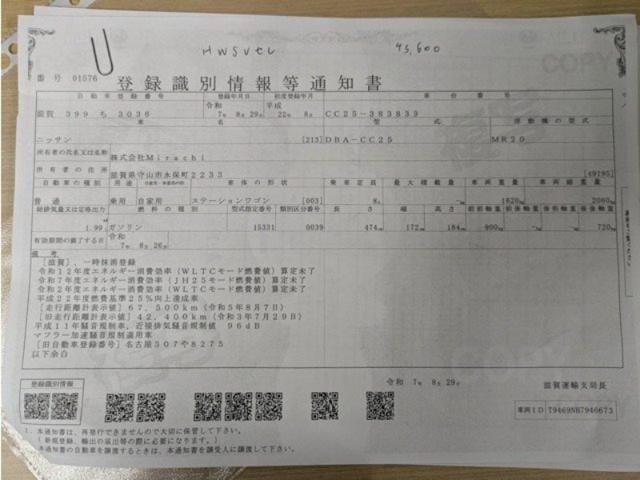 HWSVEL 43,600
番号 01576
登録識別情報等通知書
自動車登録番号 登録年月日 初度登録年月 車台番号
滋賀 399 ち 3036 令和 7年 8月 29日 平成 22年 8月 CC25-383839
車名 型式 原動機の型式
ニッサン [213] DBA-CC25 MR20
所有者の氏名又は名称 株式会社Mirachi
所有者の住所 滋賀県守山市水保町2233 [49195]
自動車の種別 用途 自家用・事業用の別 車体の形状 乗車定員 最大積載量 車両重量 車両総重量
普通 乗用 自家用 ステーションワゴン [003] 8人 - 1620kg 2060kg
総排気量又は定格出力 燃料の種類 型式指定番号 類別区分番号 長さ 幅 高さ 前前軸重 前後軸重 後前軸重 後後軸重
1.99 ガソリン 15331 0039 474cm 172cm 184cm 900kg - - 720kg
有効期間の満了する日 令和 7年 8月 26日
備考
[滋賀], 一時抹消登録
令和12年度エネルギー消費効率(WLTCモード燃費値)算定未了
令和7年度エネルギー消費効率(JH25モード燃費値)算定未了
令和2年度エネルギー消費効率(WLTCモード燃費値)算定未了
平成22年度燃費基準25%向上達成車
[走行距離計表示値] 67,500km(令和5年8月7日)
[旧走行距離計表示値] 42,400km(令和3年7月29日)
平成11年騒音規制車, 近接排気騒音規制値 96dB
マフラー加速騒音規制適用車
[旧自動車登録番号] 名古屋307や8275
以下余白
登録識別情報
令和 7年 8月 29日 滋賀運輸支局長
車両ID T9469NB7946673
1.本通知書は、再発行できませんので大切に保管して下さい。
(新規登録、輸出の届出等の際に必要になります。)
本通知書の自動車を譲渡するときは、本通知書を譲受人に譲渡して下さい。
COPY